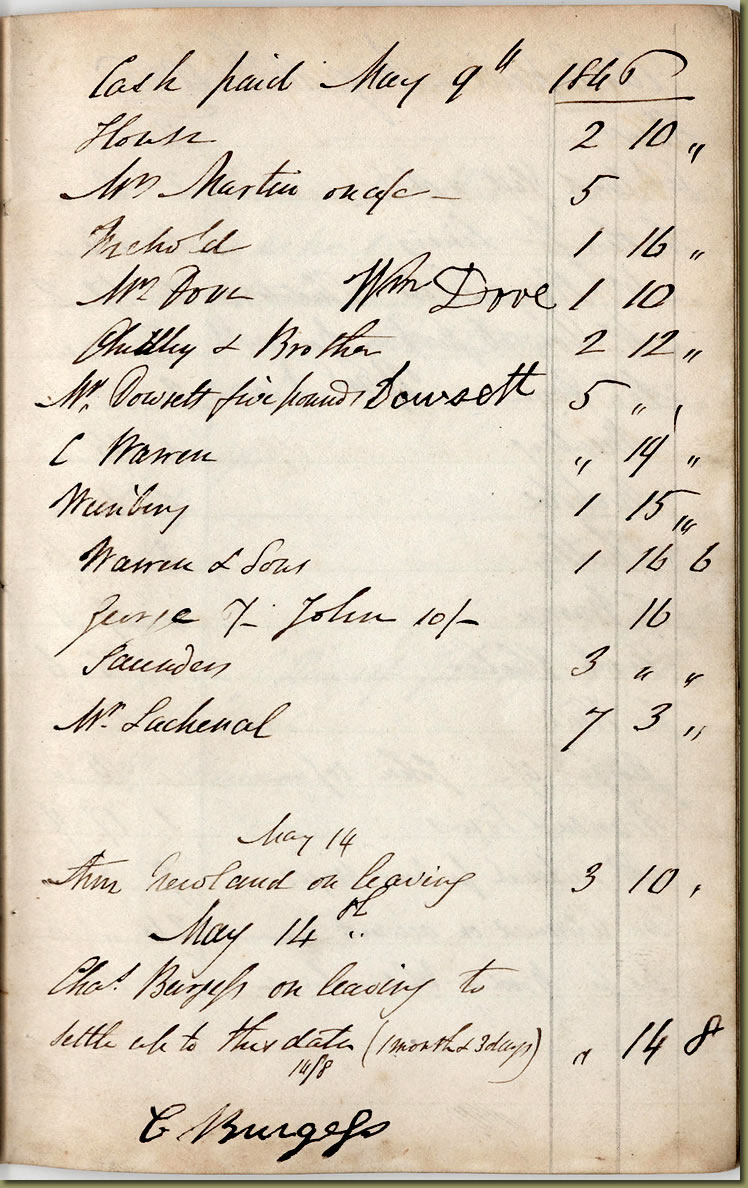 Cash paid May 9th 1846
House 2 10 "
Mrs Martin on a/c – 5
Freehold 1 16 "
Mr Dove Wm Dove 1 10
Chidley & Brother 2 12 "
Mr. Dowsett five pounds Dowsett 5 " "
C Warren " 14 "
Weinberg 1 15 "
Warren & Sons 1 16 6
George 7/- John 10/- 16
Saunders 3 " "
Mr. Lachenal 7 3 "
May 14
Ann Newland on leaving 3 10 "
May 14th
Chas. Burgess on leaving to
settle a/c to this date (1 month & 3 days) " 14 8
14/8
C Burgess